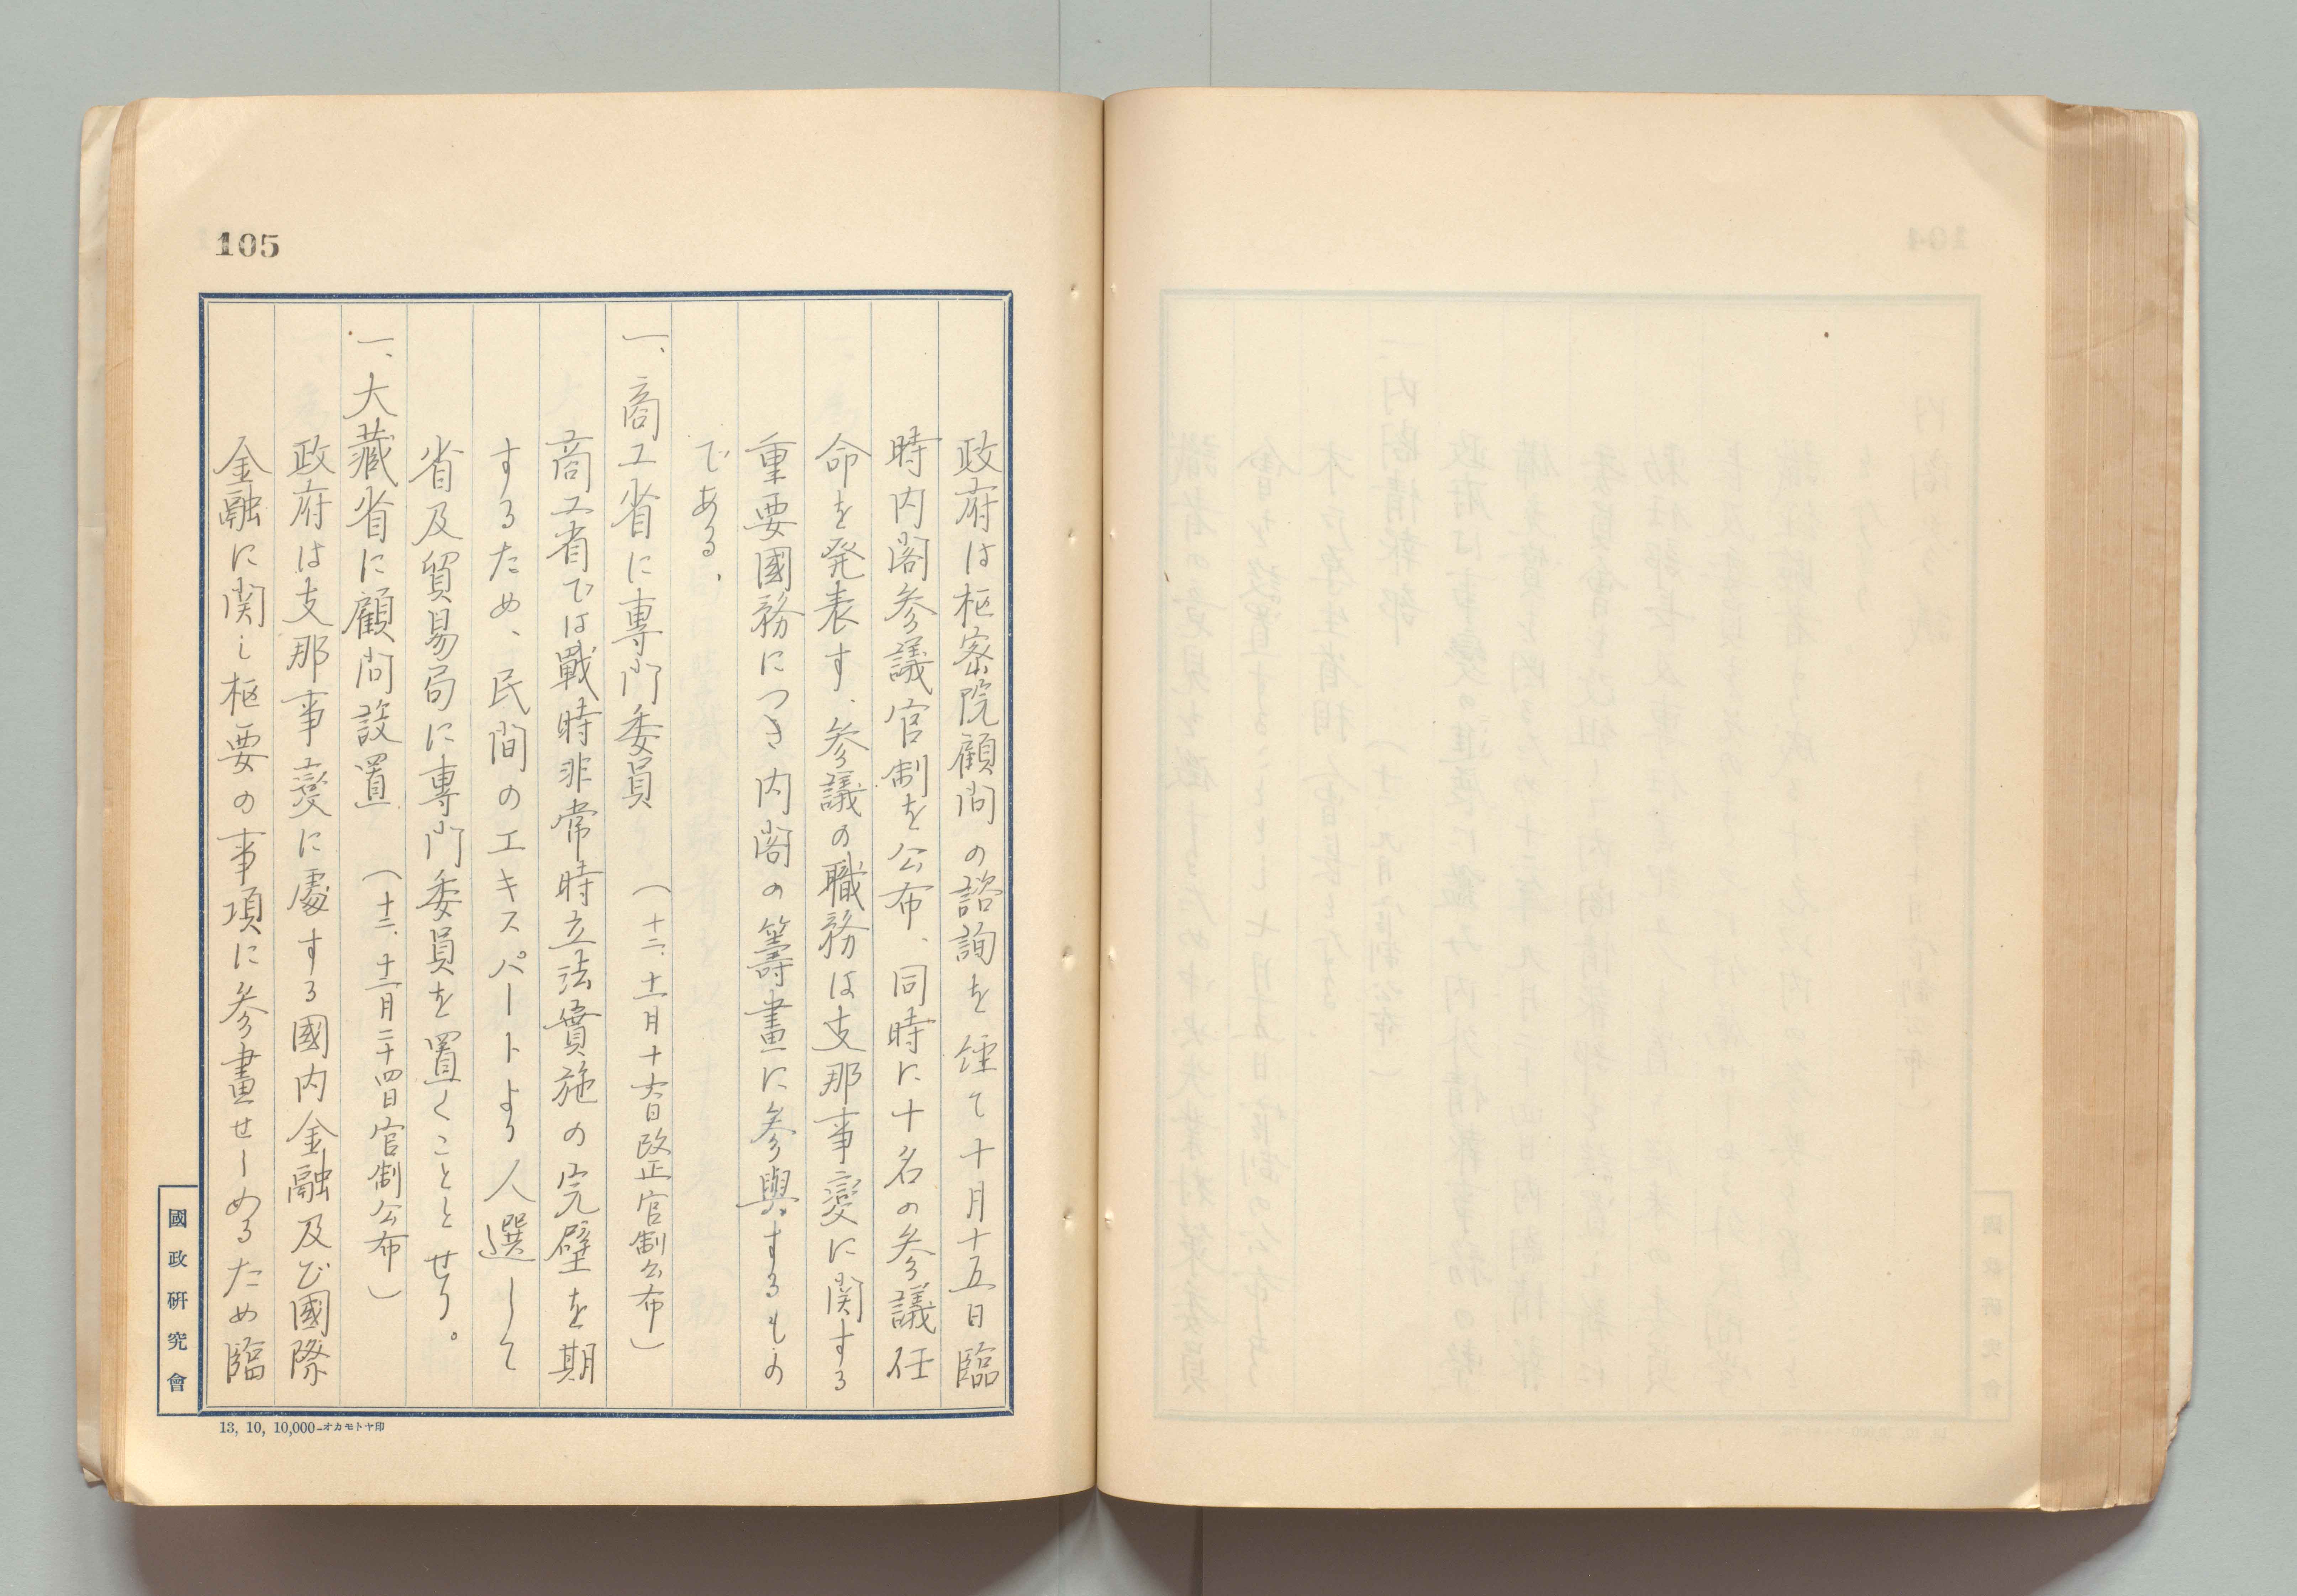 105
政府は枢密院顧問の諮詢を経て十月十五日臨
時内閣参議官制を公布、同時に十名の参議任
命を発表す、参議の職務は支那事変に関する
重要國務につき内閣の籌畫に参與するもの
である、
一、商工省に專門委員 (十二、十一月十六日改正官制公布)
商工省では戰時非常時立法實施の完璧を期
するため、民間のエキスパートより人選して
省及貿易局に專門委員を置くことゝせり。
一、大藏省に顧問設置 (十二、十二月二十四日官制公布)
政府は支那事変に處する國内金融及び國際
金融に関し枢要の事項に参畫せしめるため臨
國政研究會
13, 10, 10,000—オカモトヤ印